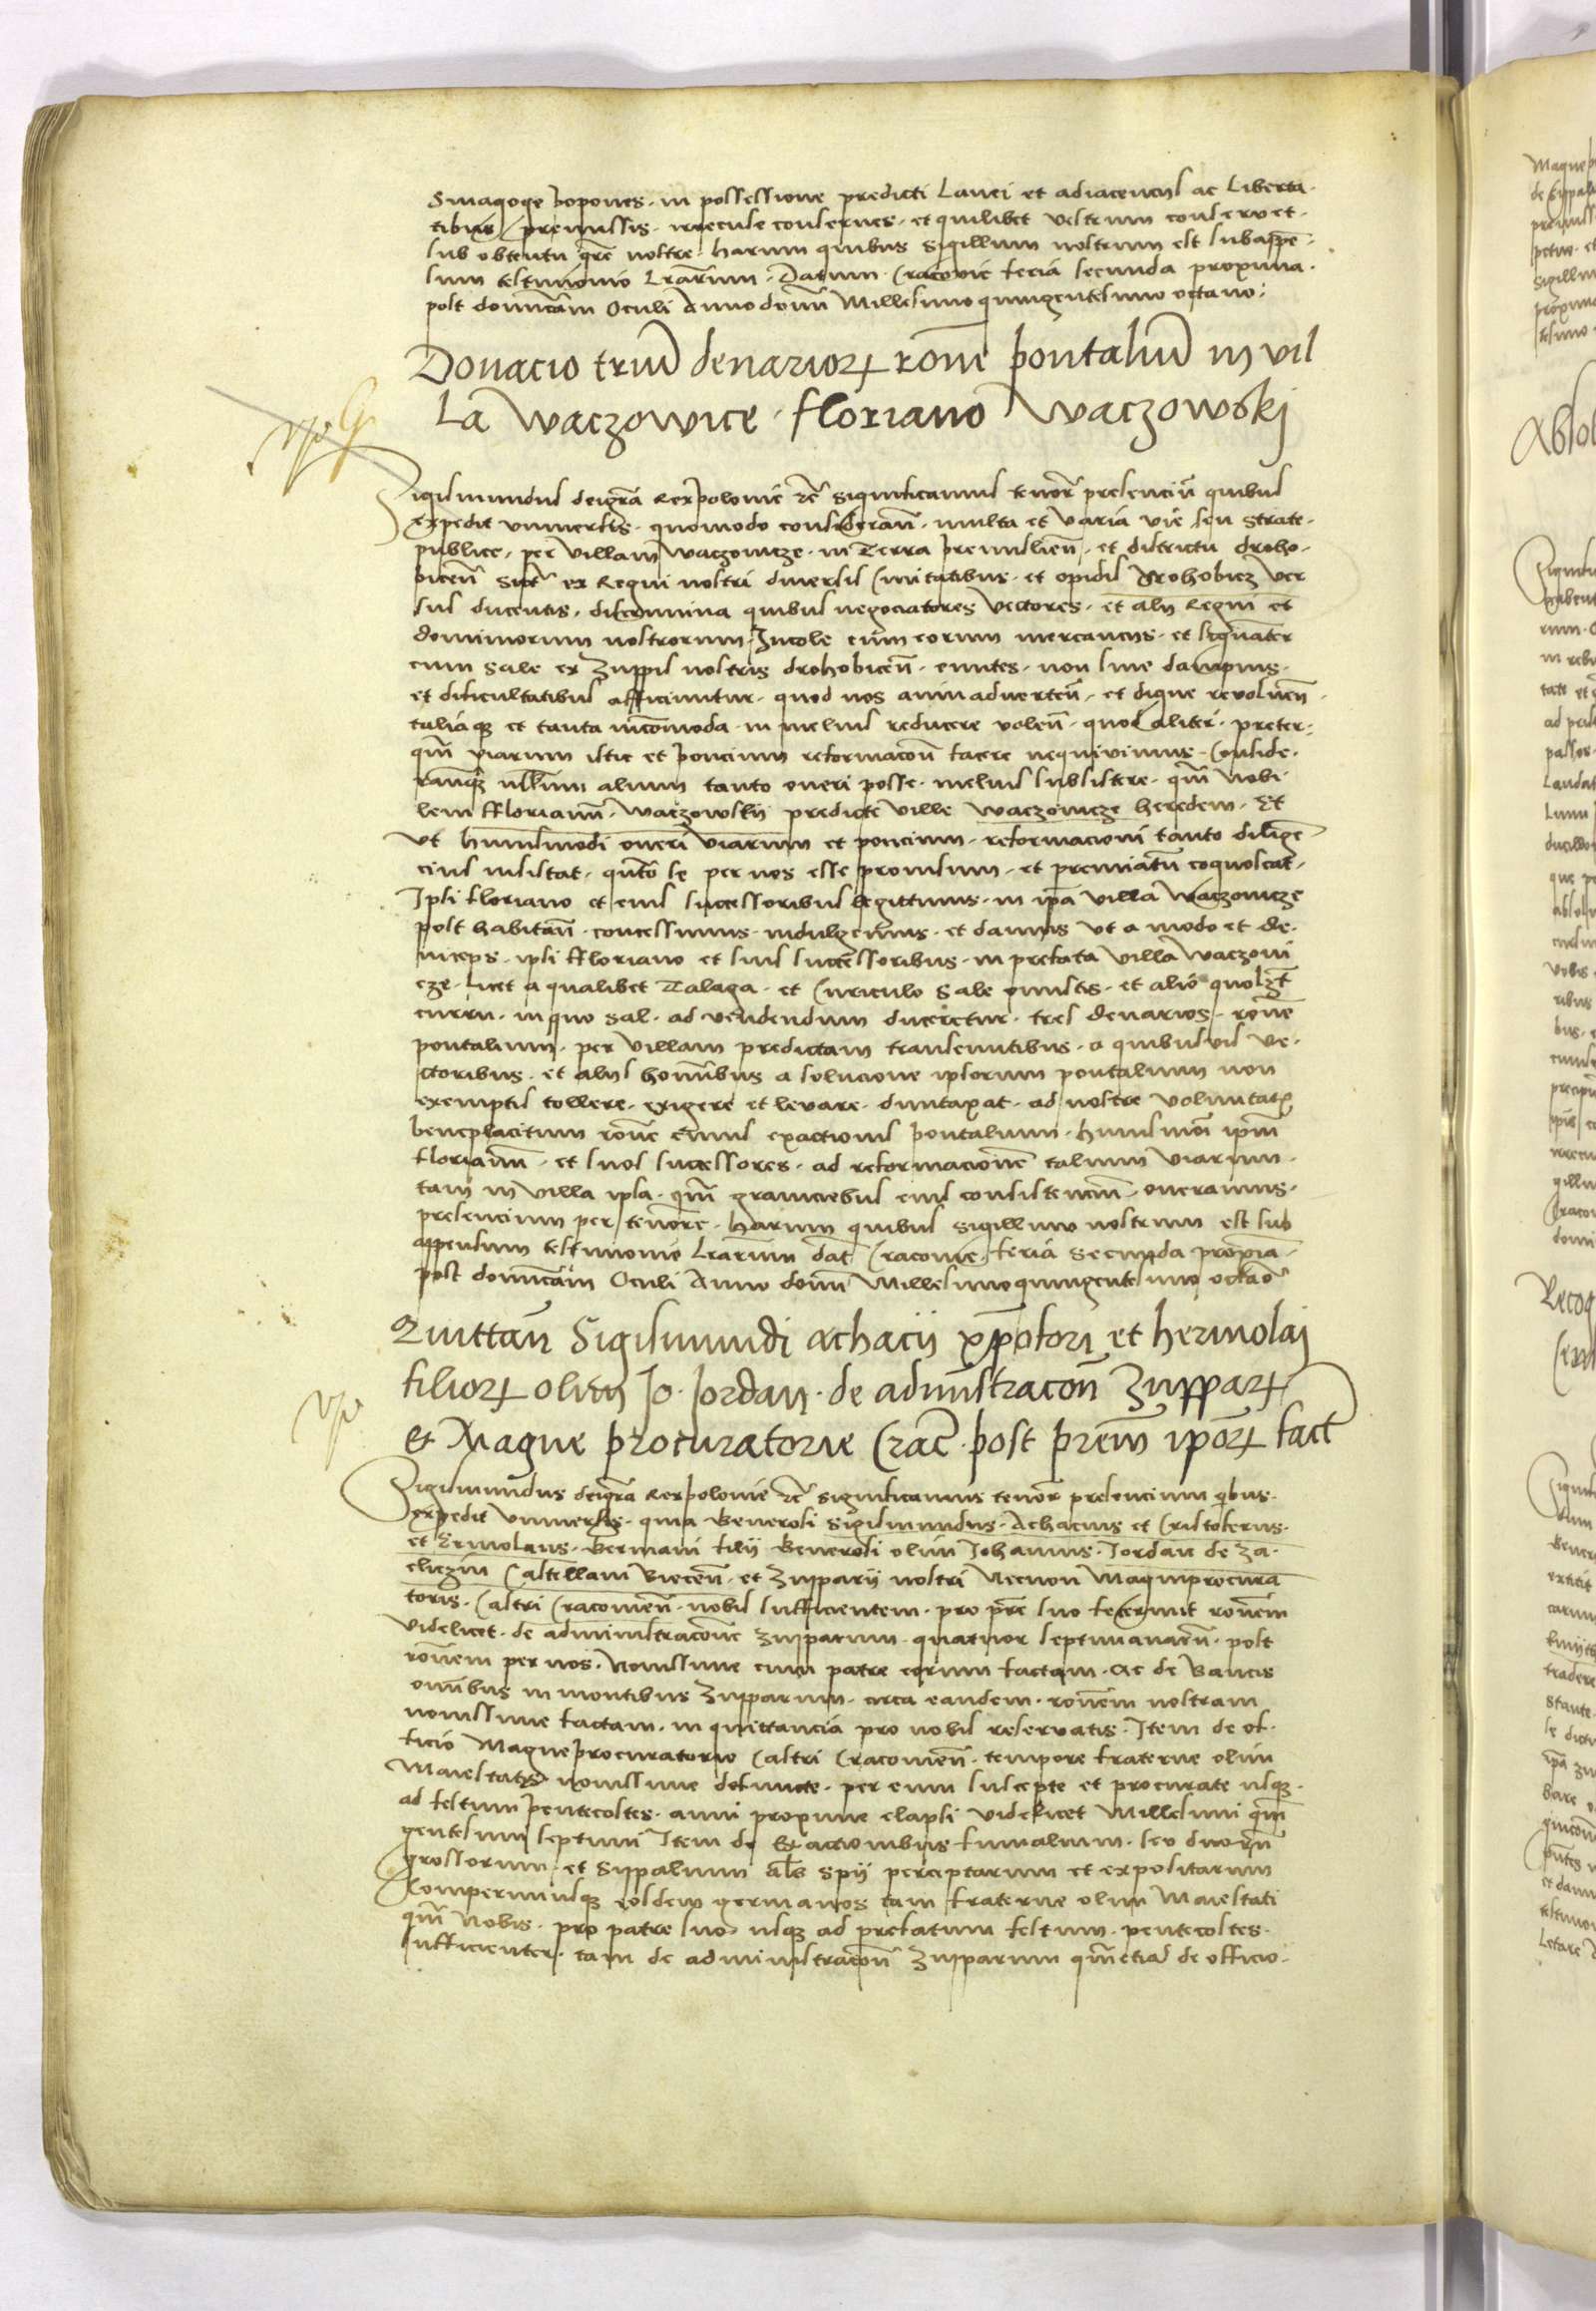 Sinagoge popones in possessione predicti Lanei et adiacencijs ac Liberta
tibus premissis irrecuse conserues et quilibet vestrum conseruet
sub obtentu gre nostre harum quibus sigillum nostrum est subappe
sum testimonio lrarum Datum Cracovie feria secunda proxima
post domicam Oculi Anno domi Millesimo quingentesimo octavo
Donacio trium denarior rone pontalium in vil
La Waczowice Floriano Waczowskj
Sigismundus dei gra Rex polonie rc significamus tenor presenciu quibus
expedit vniuersis quomodo consideran multa et varia vie seu strate
publice per villam waczowicze in Terra premislien et districtu droho
bicen ex Regni nostri diuersis Ciuitatibus et opidis Drohobicz ver
sus ducentis discrimina quibus negociatores vectores et alij Regni et
dominiorum nostrorum Incole cum eorum mercancijs et sequanter
cum sale ex Zuppis nostris drohobicen euntes non sine dampnis
et dificultatibus afficiuntur quod nos animaduerten et dique revoluen
taliaq et tanta incomoda in melius reducere volen quod aliter preter
qm viarum istic et poncium reformacon facere nequivimus Conside
ranq ullum alium tanto oneri posse melius subsistere qm nobi
lem fflorianu waczowskij predicte ville waczowicze heredem Et
vt huiusmodi oneri viarum et poncium reformacioni tanto diligen
cius insistat quto se per nos esse prouisum et premiatu cognoscat
Ipsi floriano et eius successoribus legittimis in ipa villa waczowicze
post habitan concessimus indulgemus et damus vt a modo et de
inceps ipsi ffloriano et suis successoribus in prefata villa waczowi
cze licet a qualibet Talaga et Curiculo sale onustis et alio quolzt
curru in quo sal ad vendendum duceretur tres denarios rone
pontalium per villam predictam transeuntibus a quibusuis ve
ctoribus et alijs homibus a solucione ipsorum pontalium non
exemptis tollere exigere et levare duntaxat ad nostre voluntatis
beneplacitum rone cuius exactionis pontalium huiusmoi ipm
florianu et suos successores ad reformacione talium viarum
tam in villa ipsa qm graniciebus eius consistenciu oneramus
presencium per tenore harum quibus sigillum nostrum est sub
appensum testimonio lrarum dat Cracovie feria secunda proxia
post domicam Oculi Anno domi Millesimo quingentesimo octavo
Quittan Sigismundi achacij xpofori et hermolaj
filior olim Jo Jordan de admistracon Zuppar
et Magne procuratorie Crac post prem ipor fact
Sigismundus dei gra Rex polonie rc significamus tenor presencium qbus
expedit vniuersis quia Generosi sigismundus Achacius et Cristoferus
et Ermolaus Germani filij Generosi olim Johannis Jordan de Za
cliczin Castellani Biecen et Zupparij nostri Necnon Magniprocura
toris Castri Cracovien nobis sufficientem pro pre suo fecerunt ronem
videlicet de administracone Zupparum quatuor septimanaru post
ronem per nos nouissime cum patre eorum factam ac de Bancis
omibus in montibus Zupparum circa eandem ronem nostram
nouissime factam in quittancia pro nobis reseruatis Item de of
ficio Magneprocuratorie Castri Cracovien tempore fraterne olim
Maiestatis nouissime defuncte per eum suscepte et procurate usq
ad festum pentecostes anni proxime elapsi videlicet Millesimi qn
gentesimi septimi Item de Exactionibus fumalium seu duoru
grossorum et Sippalium als spij perceptarum et expositarum
Comperimusq eosdem germanos tam fraterne olim Maiestati
qm Nobis pro patre suo usq ad prefatum festum pentecostes
sufficienter tam de administracon Zupparum qm etia de officio